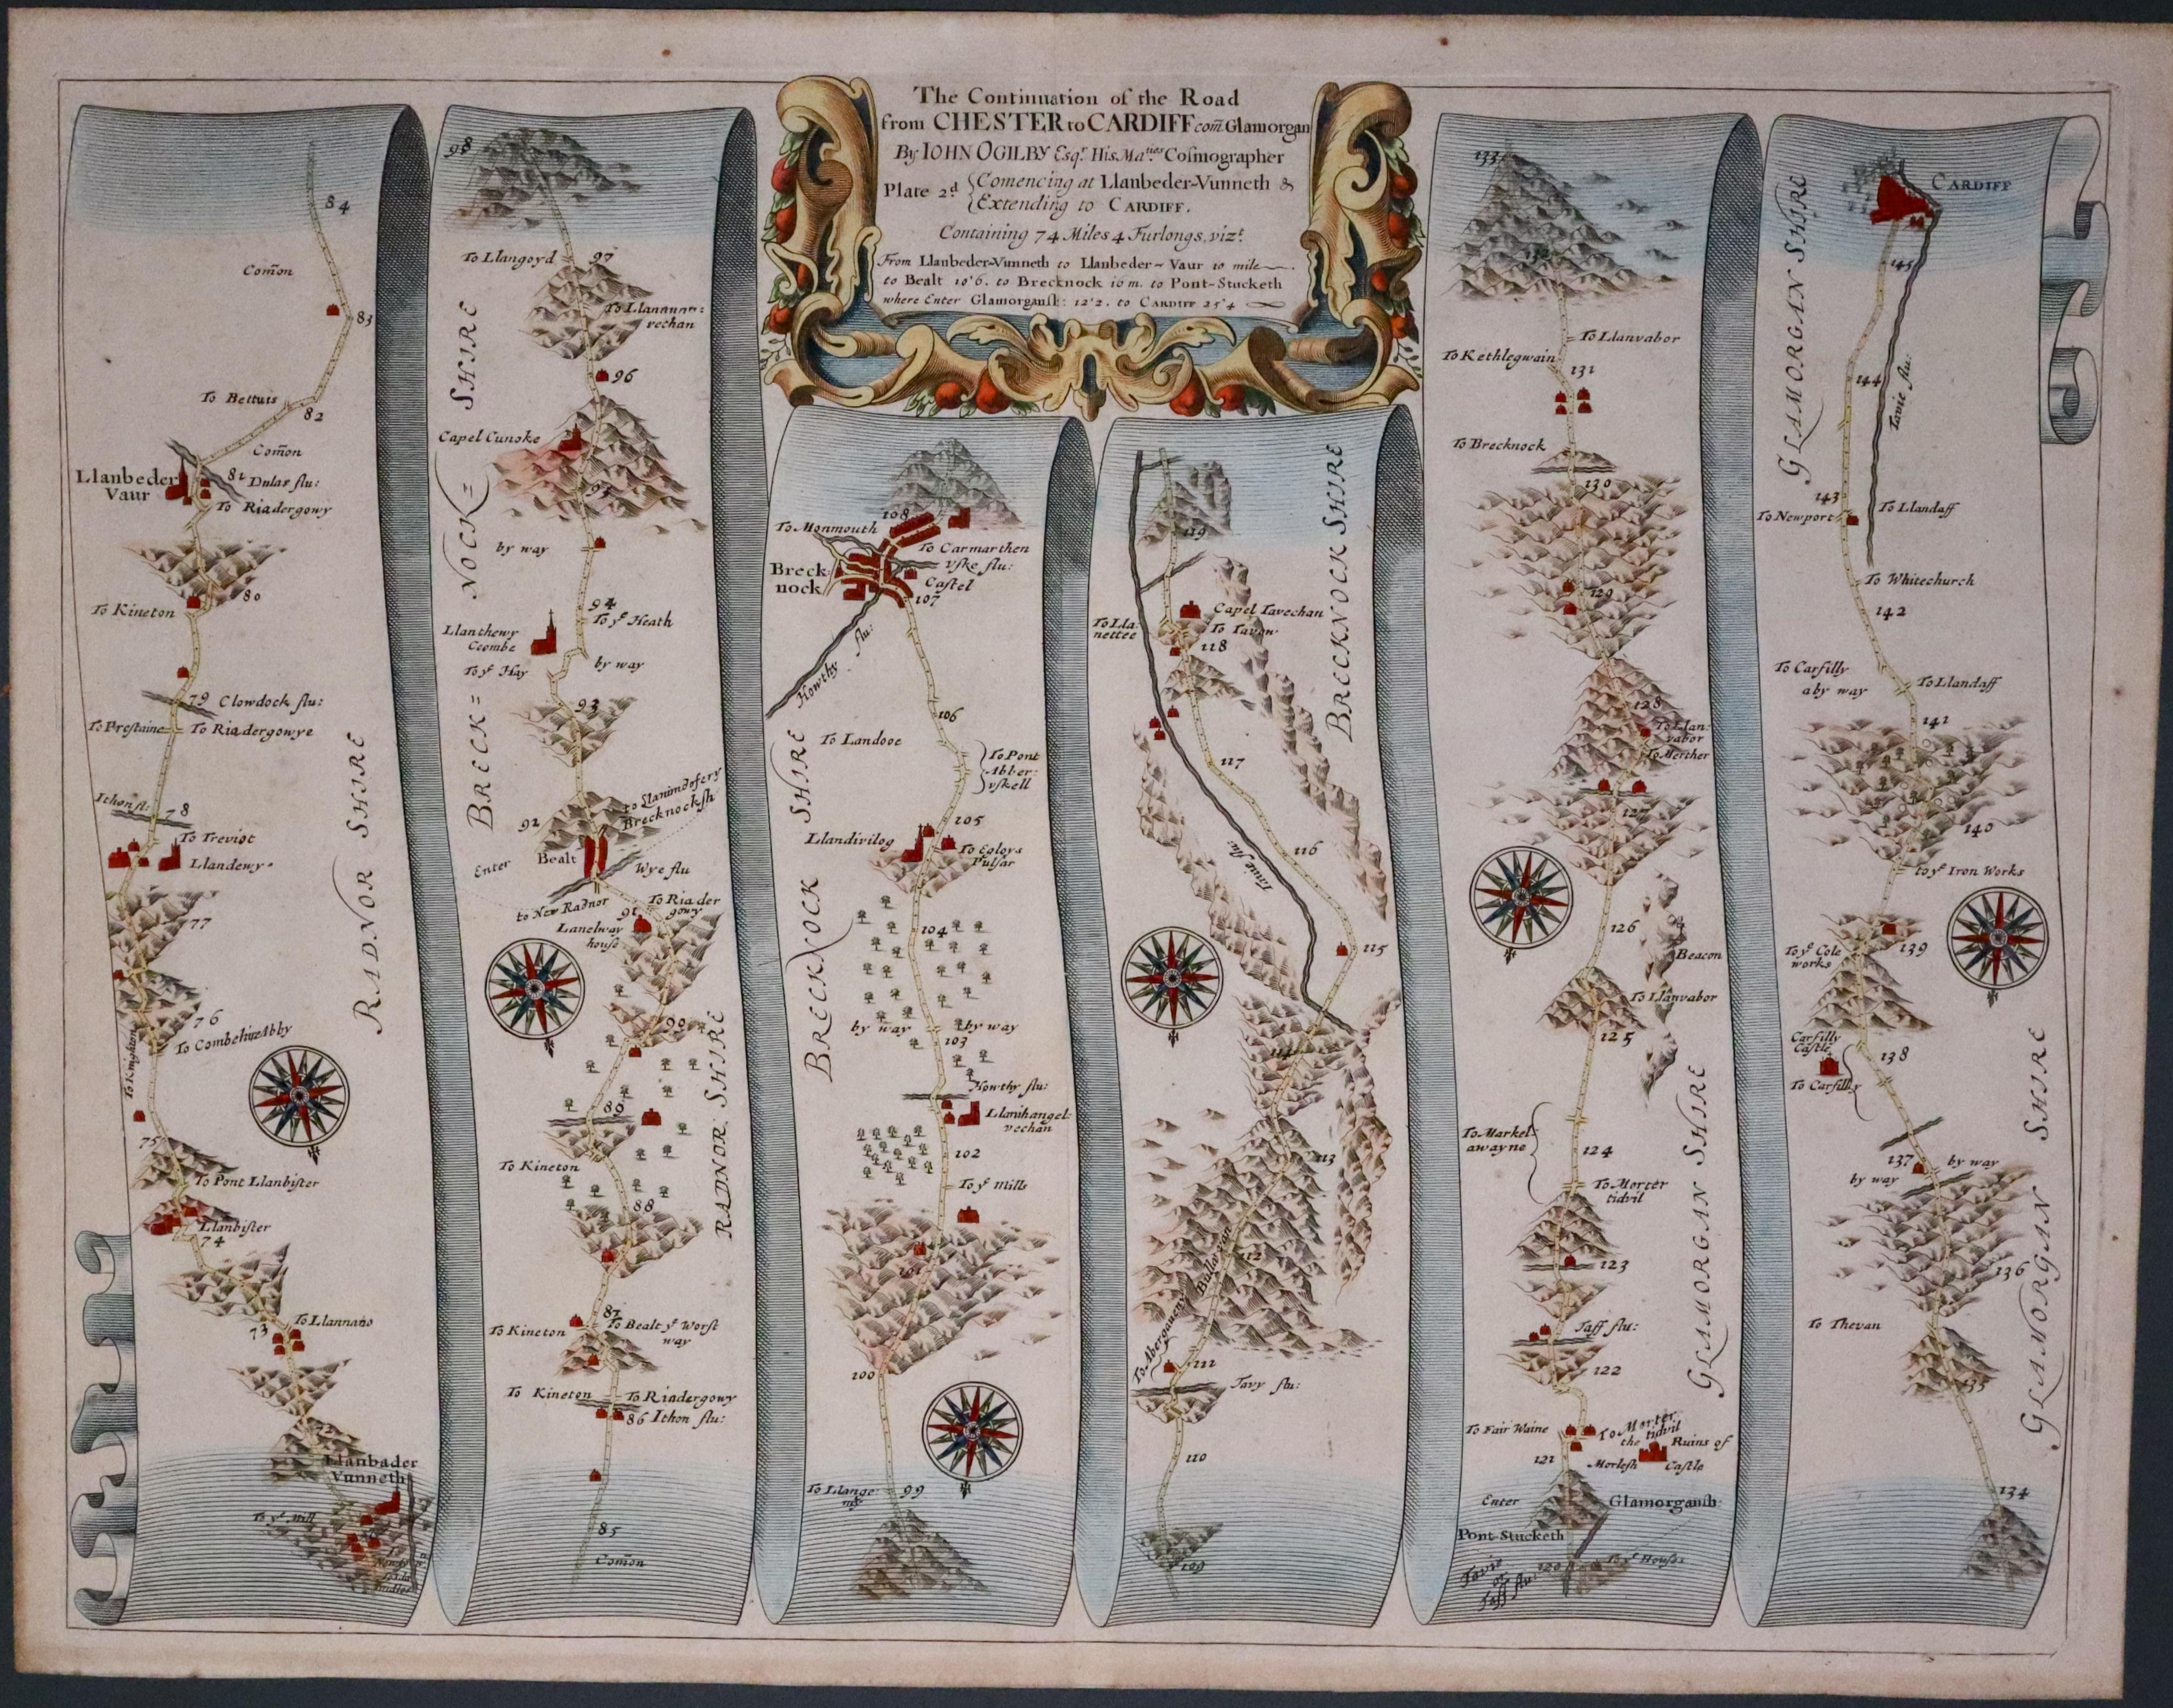 The Continuation of the Road
from CHESTER to CARDIFF com̃ Glamorgan
By IOHN OGILBY Esqr. His Maties Cosmographer
Plate 2d { Comencing at Llanbeder-Vunneth &
{ Extending to CARDIFF.
Containing 74 Miles 4 Furlongs, vizt.
From Llanbeder-Vunneth to Llanbeder-Vaur 10 mile
to Bealt 10'6. to Brecknock 16 m. to Pont-Stucketh
where Enter Glamorgansh: 12'2. to CARDIFF 25'4
84
Com̃on
83
To Bettuis
82
Com̃on
Llanbeder
Vaur
81
Dulas flu:
To Riadergowy
80
To Kineton
79
Clowdock flu:
To Prestaine
To Riadergowye
RADNOR SHIRE
Ithon fl:
78
To Treviot
Llandewy
77
76
To Combehire Abby
To Knighton
75
To Pont Llanbister
Llanbister
74
73
To Llannano
72
Llanbader
Vunneth
To ye Mill
98
To Llangoyd
97
vechan
96
BRECK=NOCK=SHIRE
Capel Cunoke
95
by way
94
To ye Heath
Llanthewy
Coombe
To ye Hay
by way
93
92
to Llanimdofery
Brecknocksh
Enter
Bealt
Wye flu
to New Radnor
To Riader
gowy
91
Lanelway
house
90
RADNOR SHIRE
89
To Kineton
88
87
To Kineton
To Bealt ye Worst
way
To Kineton
To Riadergowy
86
Ithon flu:
85
Com̃on
108
To Monmouth
To Carmarthen
Vske flu:
Breck
nock
Castel
107
Howthy flu:
106
To Landooe
To Pont
Abber:
vskell
BRECKNOCK SHIRE
105
Llandivilog
To Egloys
Pulsar
104
by way
by way
103
Howthy flu:
Llanihangel
vechan
102
To ye Mills
101
100
To Llange:
99
119
BRECKNOCK SHIRE
Capel Tavechan
To Lla:
nettee
To Tavon
118
117
116
Tavie flu:
115
114
113
112
To Abergaueny
111
Tavy flu:
110
109
133
132
To Llanvabor
To Kethlegwain
131
To Brecknock
130
129
128
To Llan:
vabor
To Merther
127
126
Beacon
To Llanvabor
125
To Markel
awayne
124
To Morter
tidvil
GLAMORGAN SHIRE
123
Taff flu:
122
To Fair Waine
To Morter
the tidvil
121
Morlesh
Ruins of
Castle
Enter
Glamorgansh:
Pont-Stucketh
Tavie
or
Taff flu:
120
To ye House
CARDIFF
GLAMORGAN SHIRE
145
144
Tavie flu:
143
To Newport
To Llandaff
To Whitechurch
142
To Carfilly
aby way
To Llandaff
141
140
to ye Iron Works
139
To ye Cole
works
Carfilly
Castle
138
To Carfilly
137
by way
by way
136
GLAMORGAN SHIRE
To Thevan
135
134